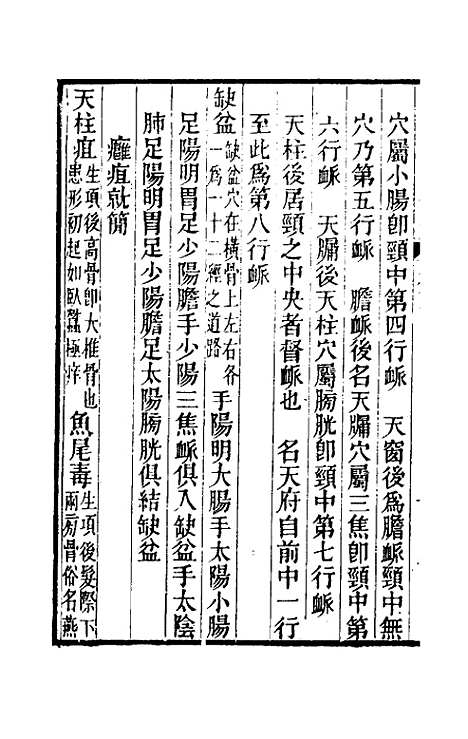 穴屬小腸卽頸中第四行衇　天窗後爲膽衇頸中無
穴乃第五行衇　膽衇後名天牖穴屬三焦卽頸中第
六行衇　天牖後天柱穴屬膀胱卽頸中第七行衇
天柱後居頸之中央者督衇也　名天府自前中一行
至此爲第八行衇
缺盆缺盆穴在橫骨上左右各一爲一十二經之道路　手陽明大腸手太陽小腸
足陽明胃足少陽膽手少陽三焦衇俱入缺盆手太陰
肺足陽明胃足少陽膽足太陽膀胱俱結缺盆
癰疽就簡
天柱疽生項後高骨卽大椎骨也患形初起如臥蠶極痒　魚尾毒生項後髮際下兩旁骨俗名燕